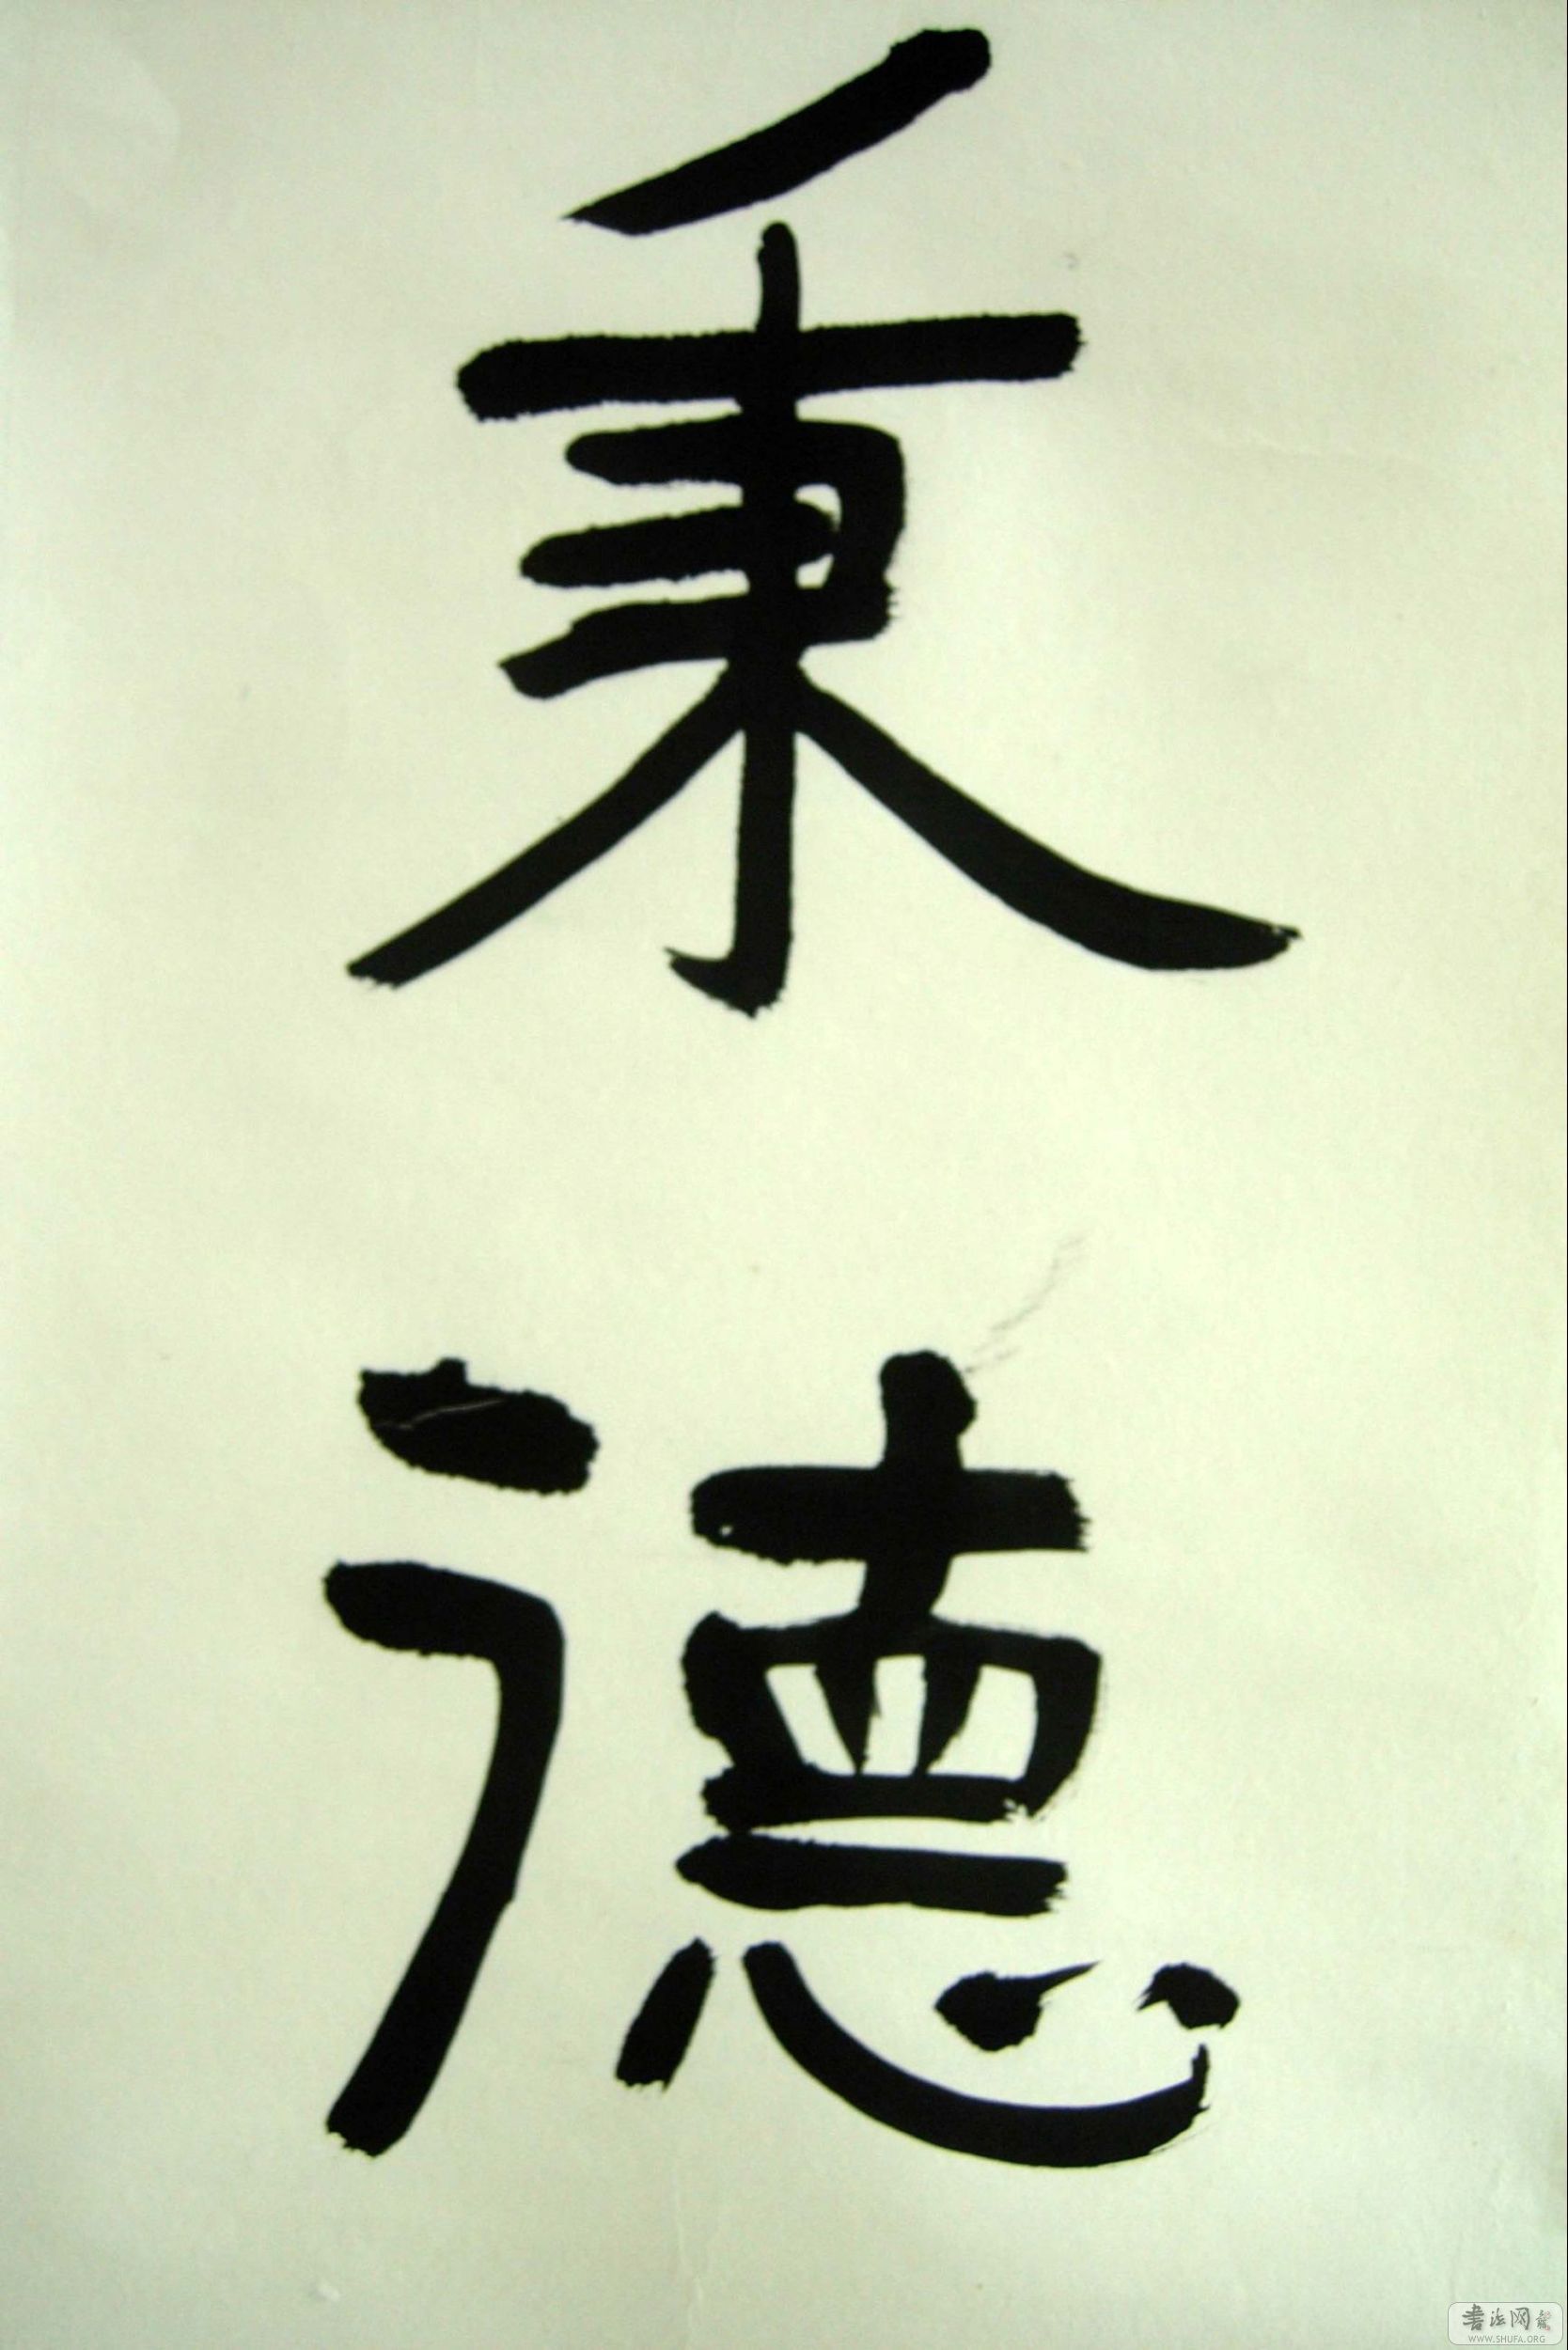 秉
德
书法网
WWW.SHUFA.ORG